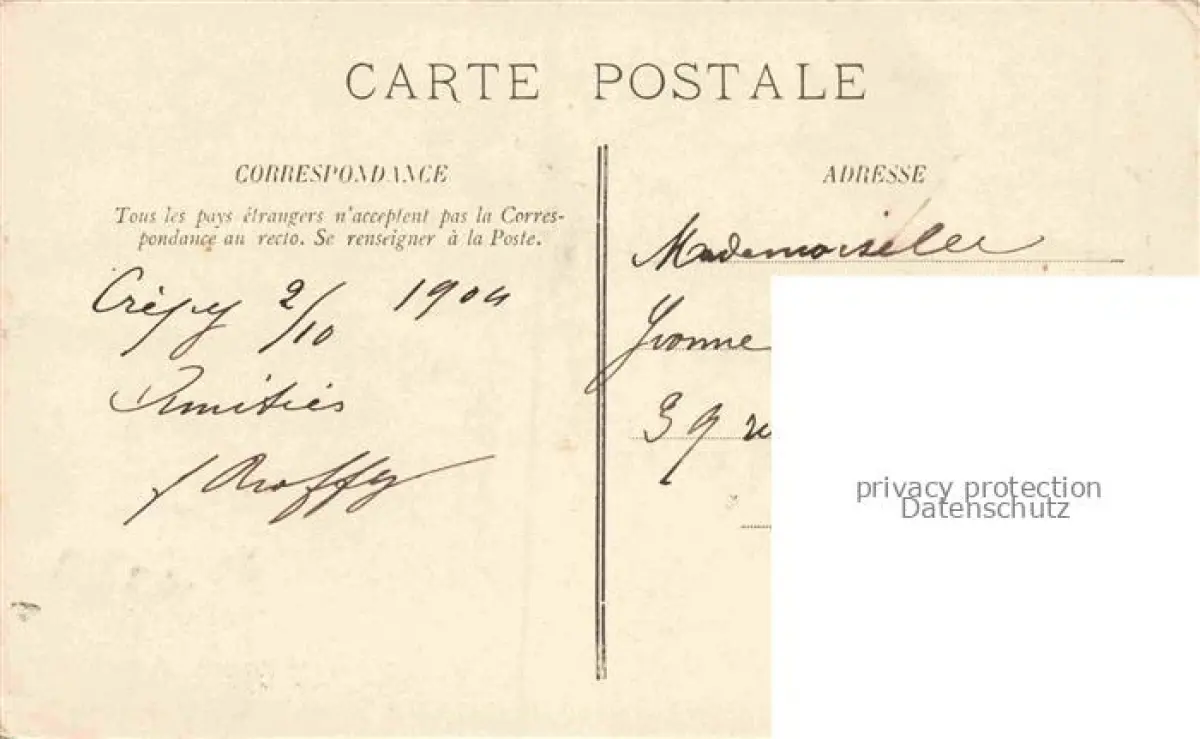 CARTE POSTALE
CORRESPONDANCE
Tous les pays étrangers n'acceptent pas la Corres-
pondance au recto. Se renseigner à la Poste.
Crépy 2/10 1904
Amitiés
ADRESSE
Mademoiselle
Yvonne
39 r
privacy protection
Datenschutz